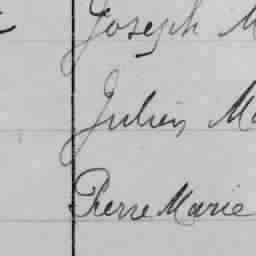 Joseph M
Julien Ma
Pierre Marie